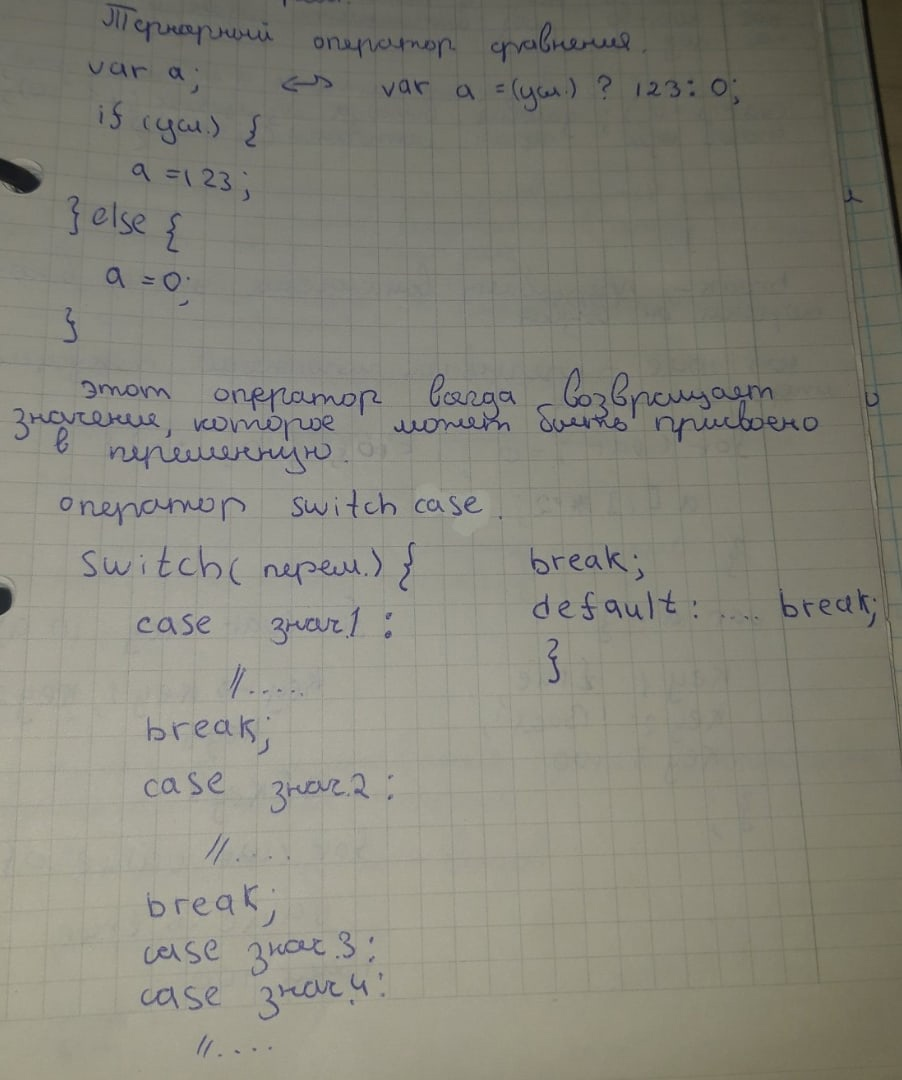 Тернарный оператор сравнения.
var a; <-> var a = (усл.) ? 123 : 0;
if (усл.) {
a = 123;
} else {
a = 0;
}
этот оператор всегда возвращает
значение, которое может быть присвоено
в переменную.
оператор switch case.
switch( перем.) {
case знач.1 :
//.....
break;
case знач.2 :
//....
break;
case знач.3 :
case знач.4 :
//....
break;
default : .... break;
}